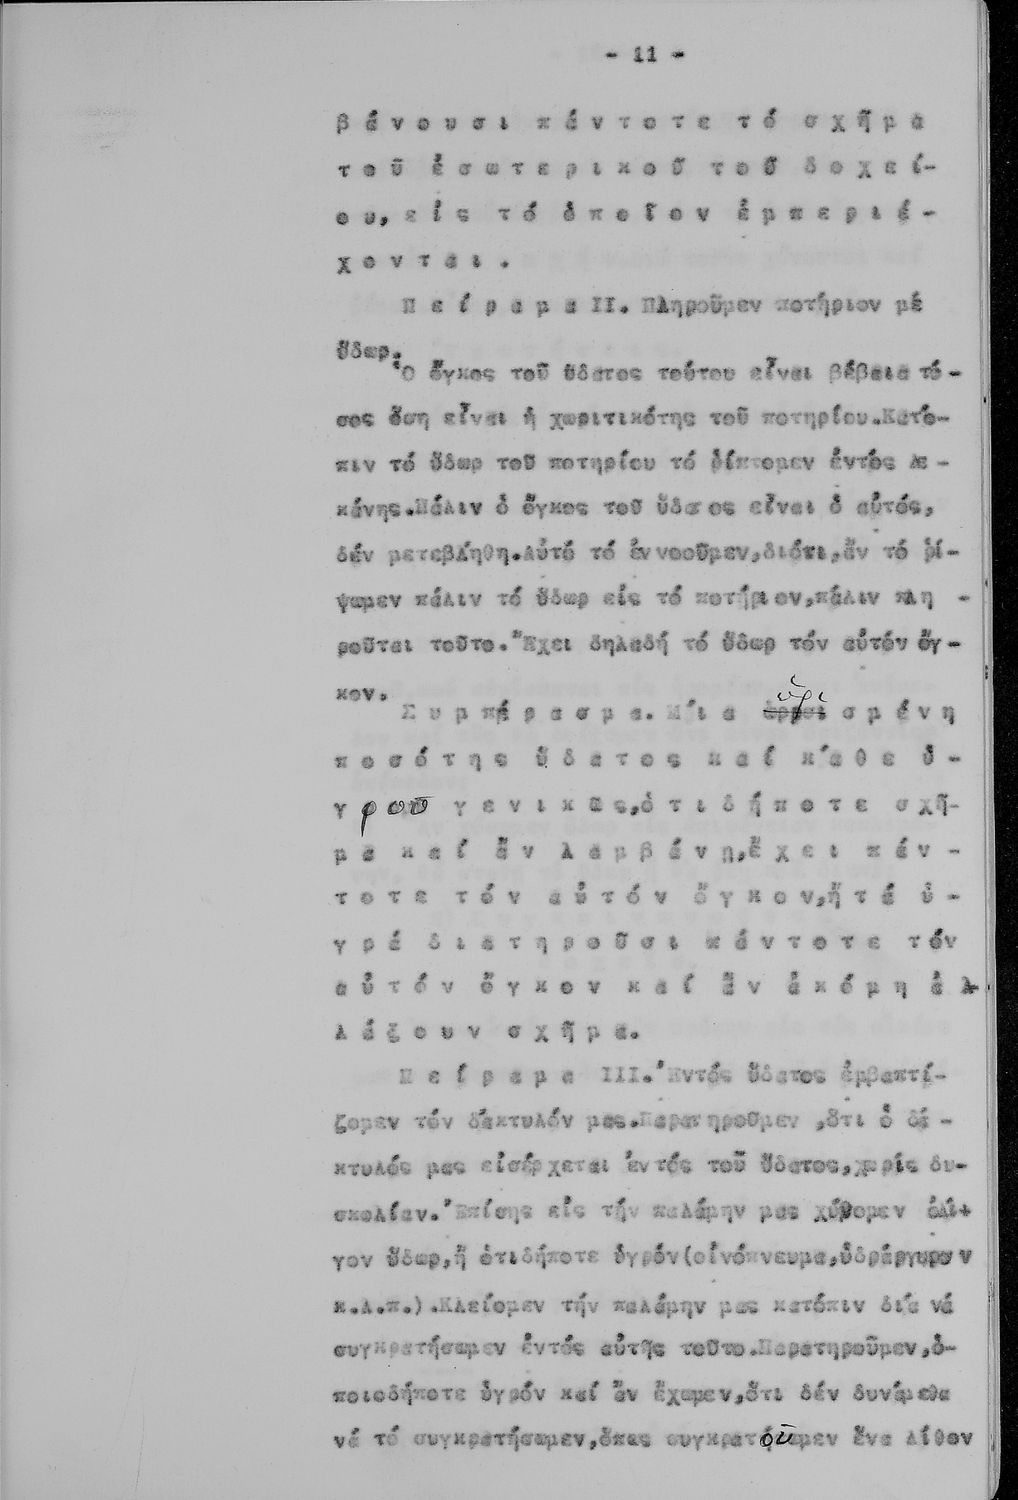 - 11 -
βάνουσι πάντοτε τό σχῆμα
τοῦ ἐσωτερικοῦ τοῦ δοχεί-
ου, εἰς τό ὁποῖον ἐμπεριέ-
χονται.
Πείραμα ΙΙ. Πληροῦμεν ποτήριον μέ
ὕδωρ.
Ὁ ὄγκος τοῦ ὕδατος τούτου εἶναι βέβαια τό-
σος ὅση εἶναι ἡ χωριτικότης τοῦ ποτηρίου. Κατό-
πιν τό ὕδωρ τοῦ ποτηρίου τό ρίπτομεν ἐντός λε-
κάνης. Πάλιν ὁ ὄγκος τοῦ ὕδατος εἶναι ὁ αὐτός,
δέν μετεβλήθη. Αὐτό τό ἐννοοῦμεν, διότι, ἄν τό ρί-
ψωμεν πάλιν τό ὕδωρ εἰς τό ποτήριον, πάλιν πλη-
ροῦται τοῦτο. Ἔχει δηλαδή τό ὕδωρ τόν αὐτόν ὄγ-
κον.
Συμπέρασμα. Μία ὡρισμένη
ποσότης ὕδατος καί κάθε ὑ-
γροῦ γενικῶς, ὁτιδήποτε σχῆ-
μα καί ἄν λαμβάνη, ἔχει πάν-
τοτε τόν αὐτόν ὄγκον, ἤ τά ὑ-
γρά διατηροῦσι πάντοτε τόν
αὐτόν ὄγκον καί ἄν ἀκόμη ἀλ-
λάξουν σχῆμα.
Πείραμα ΙΙΙ. Ἐντός ὕδατος ἐμβαπτί-
ζομεν τόν δάκτυλόν μας. Παρατηροῦμεν, ὅτι ὁ δά-
κτυλός μας εἰσέρχεται ἐντός τοῦ ὕδατος, χωρίς δυ-
σκολίαν. Ἐπίσης εἰς τήν παλάμην μας χύνομεν ὀλί-
γον ὕδωρ, ἤ ὁτιδήποτε ὑγρόν (οἰνόπνευμα, ὑδράργυρον
κ.λ.π.). Κλείομεν τήν παλάμην μας κατόπιν διά νά
συγκρατήσωμεν ἐντός αὐτῆς τοῦτο. Παρατηροῦμεν, ὁ-
ποιοδήποτε ὑγρόν καί ἄν ἔχωμεν, ὅτι δέν δυνάμεθα
νά τό συγκρατήσωμεν, ὅπως συγκρατοῦμεν ἕνα λίθον